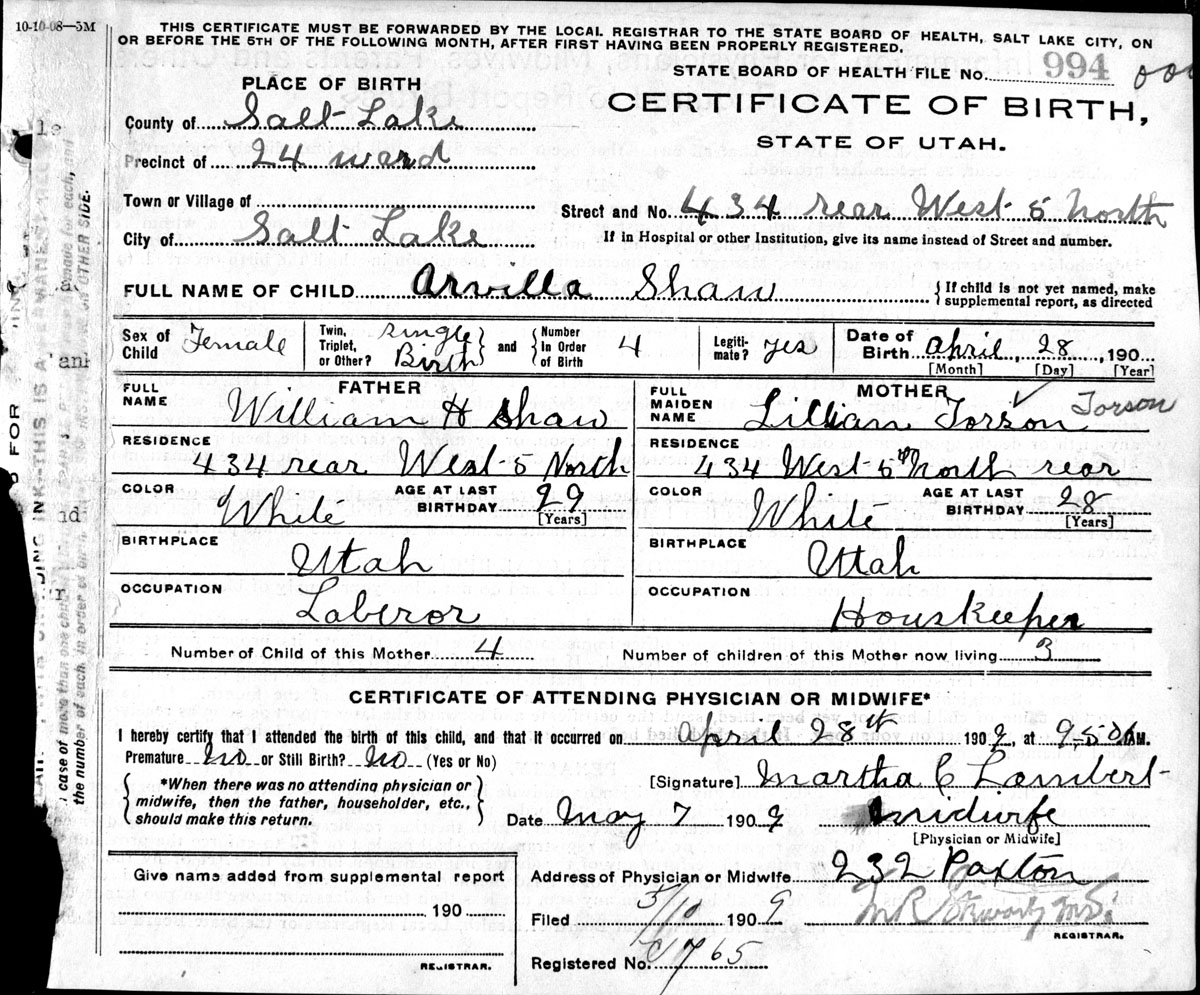 10-10-08—5M
THIS CERTIFICATE MUST BE FORWARDED BY THE LOCAL REGISTRAR TO THE STATE BOARD OF HEALTH, SALT LAKE CITY, ON
OR BEFORE THE 5TH OF THE FOLLOWING MONTH, AFTER FIRST HAVING BEEN PROPERLY REGISTERED.
STATE BOARD OF HEALTH FILE No. 994
PLACE OF BIRTH
CERTIFICATE OF BIRTH,
STATE OF UTAH.
County of Salt Lake
Precinct of 24 ward
Town or Village of
Street and No. 434 rear West 5 North
City of Salt Lake
If in Hospital or other Institution, give its name instead of Street and number.
FULL NAME OF CHILD Arvilla Shaw
{ If child is not yet named, make
supplemental report, as directed
Sex of Child Female
Twin, Triplet, or Other? Single Birth
and
Number In Order of Birth 4
Legiti-mate? yes
Date of Birth April, 28, 190
[Month] [Day] [Year]
FATHER
FULL NAME William H Shaw
MOTHER
FULL MAIDEN NAME Lillian Torson Torson
RESIDENCE
434 rear West 5 North
RESIDENCE
434 West 5th North rear
COLOR White
AGE AT LAST BIRTHDAY 29
[Years]
COLOR White
AGE AT LAST BIRTHDAY 28
[Years]
BIRTHPLACE
Utah
BIRTHPLACE
Utah
OCCUPATION
Laberor
OCCUPATION
Houskeeper
Number of Child of this Mother 4
Number of children of this Mother now living 3
CERTIFICATE OF ATTENDING PHYSICIAN OR MIDWIFE*
I hereby certify that I attended the birth of this child, and that it occurred on April 28th 1909, at 9.50 AM.
Premature? No or Still Birth? No (Yes or No)
*When there was no attending physician or
midwife, then the father, householder, etc.,
should make this return.
[Signature] Martha C Lambert
Date May 7 1909
Midwife
[Physician or Midwife]
Address of Physician or Midwife 232 Paxton
Give name added from supplemental report
190
REGISTRAR.
Filed 5/10 1909
REGISTRAR.
Registered No. 765
case of more than one child
the number of each, in order of birth
OTHER SIDE.